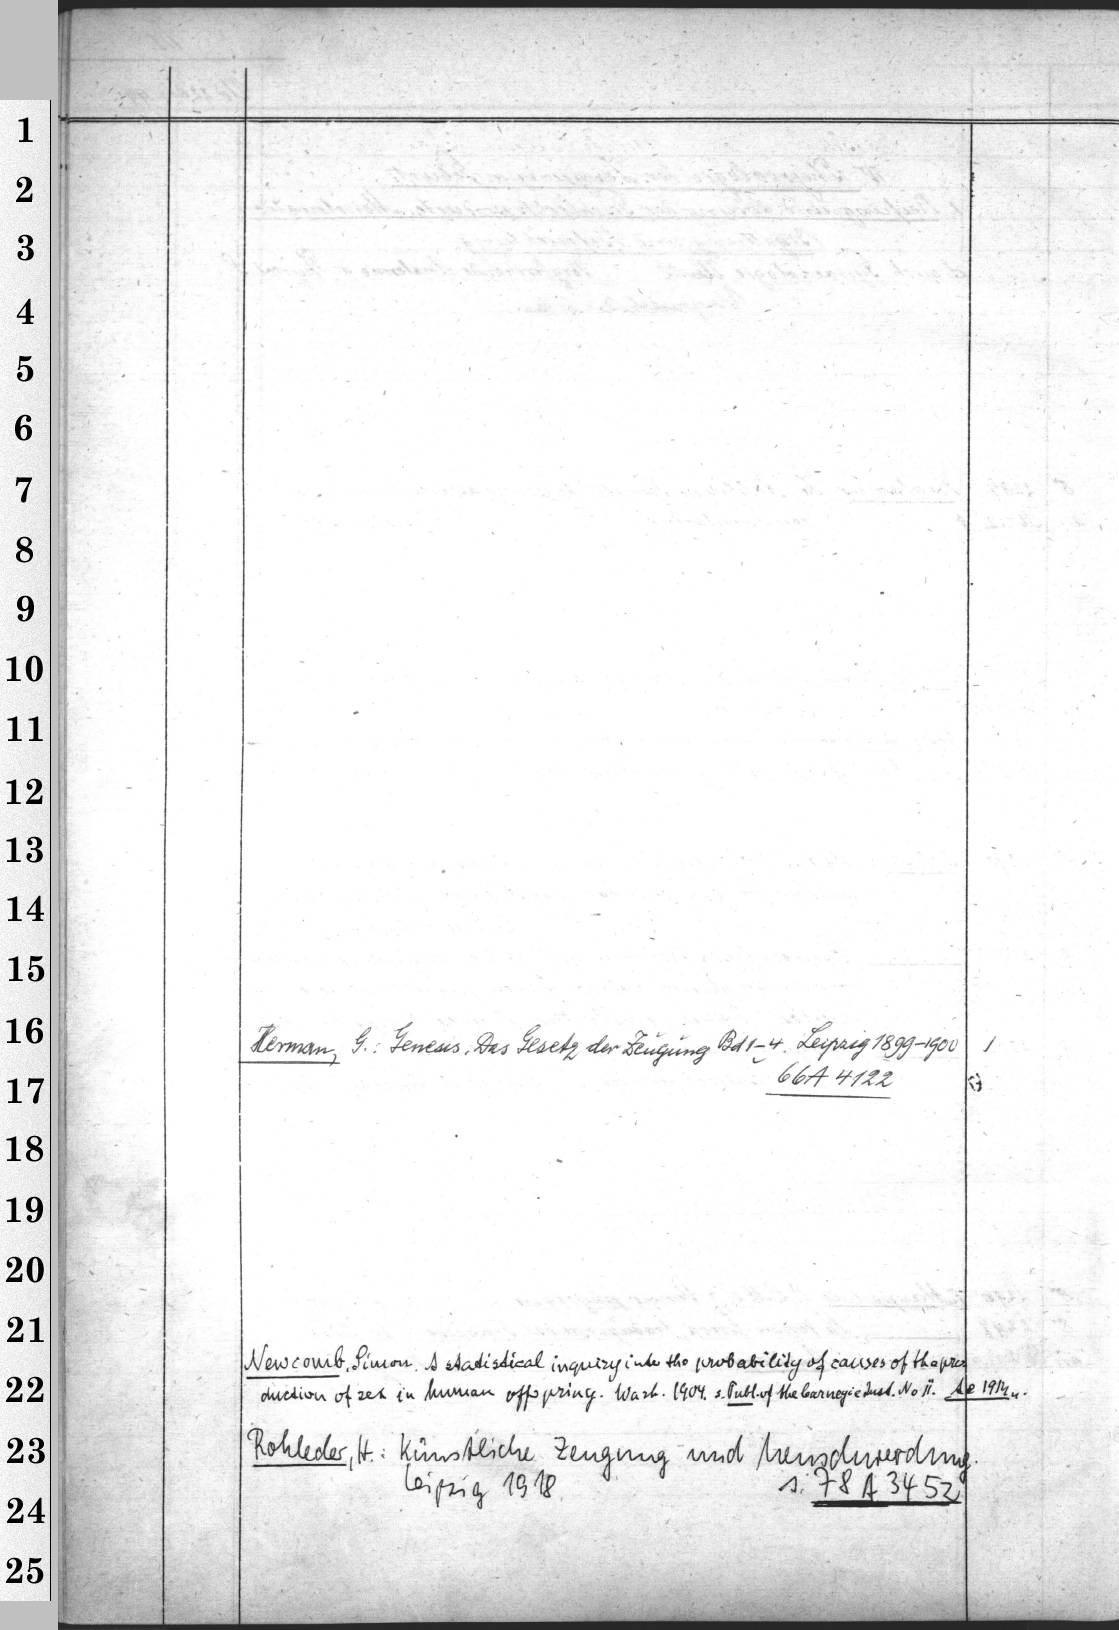 1
2
3
4
5
6
7
8
9
10
11
12
13
14
15
16
Herman, G.: Genesis. Das Gesetz der Zeugung Bd 1-4. Leipzig 1899-1900 1
17
66A 4122
18
19
20
21
Newcomb, Simon. A statistical inquiry into the probability of causes of the pro
22
duction of sex in human offspring. Wash. 1904. s. Publ. of the Carnegie Inst. No 11.
23
Rohleder, H.: Künstliche Zeugung und Menschwerdung.
Leipzig 1918. s. 78 A 3452
24
25